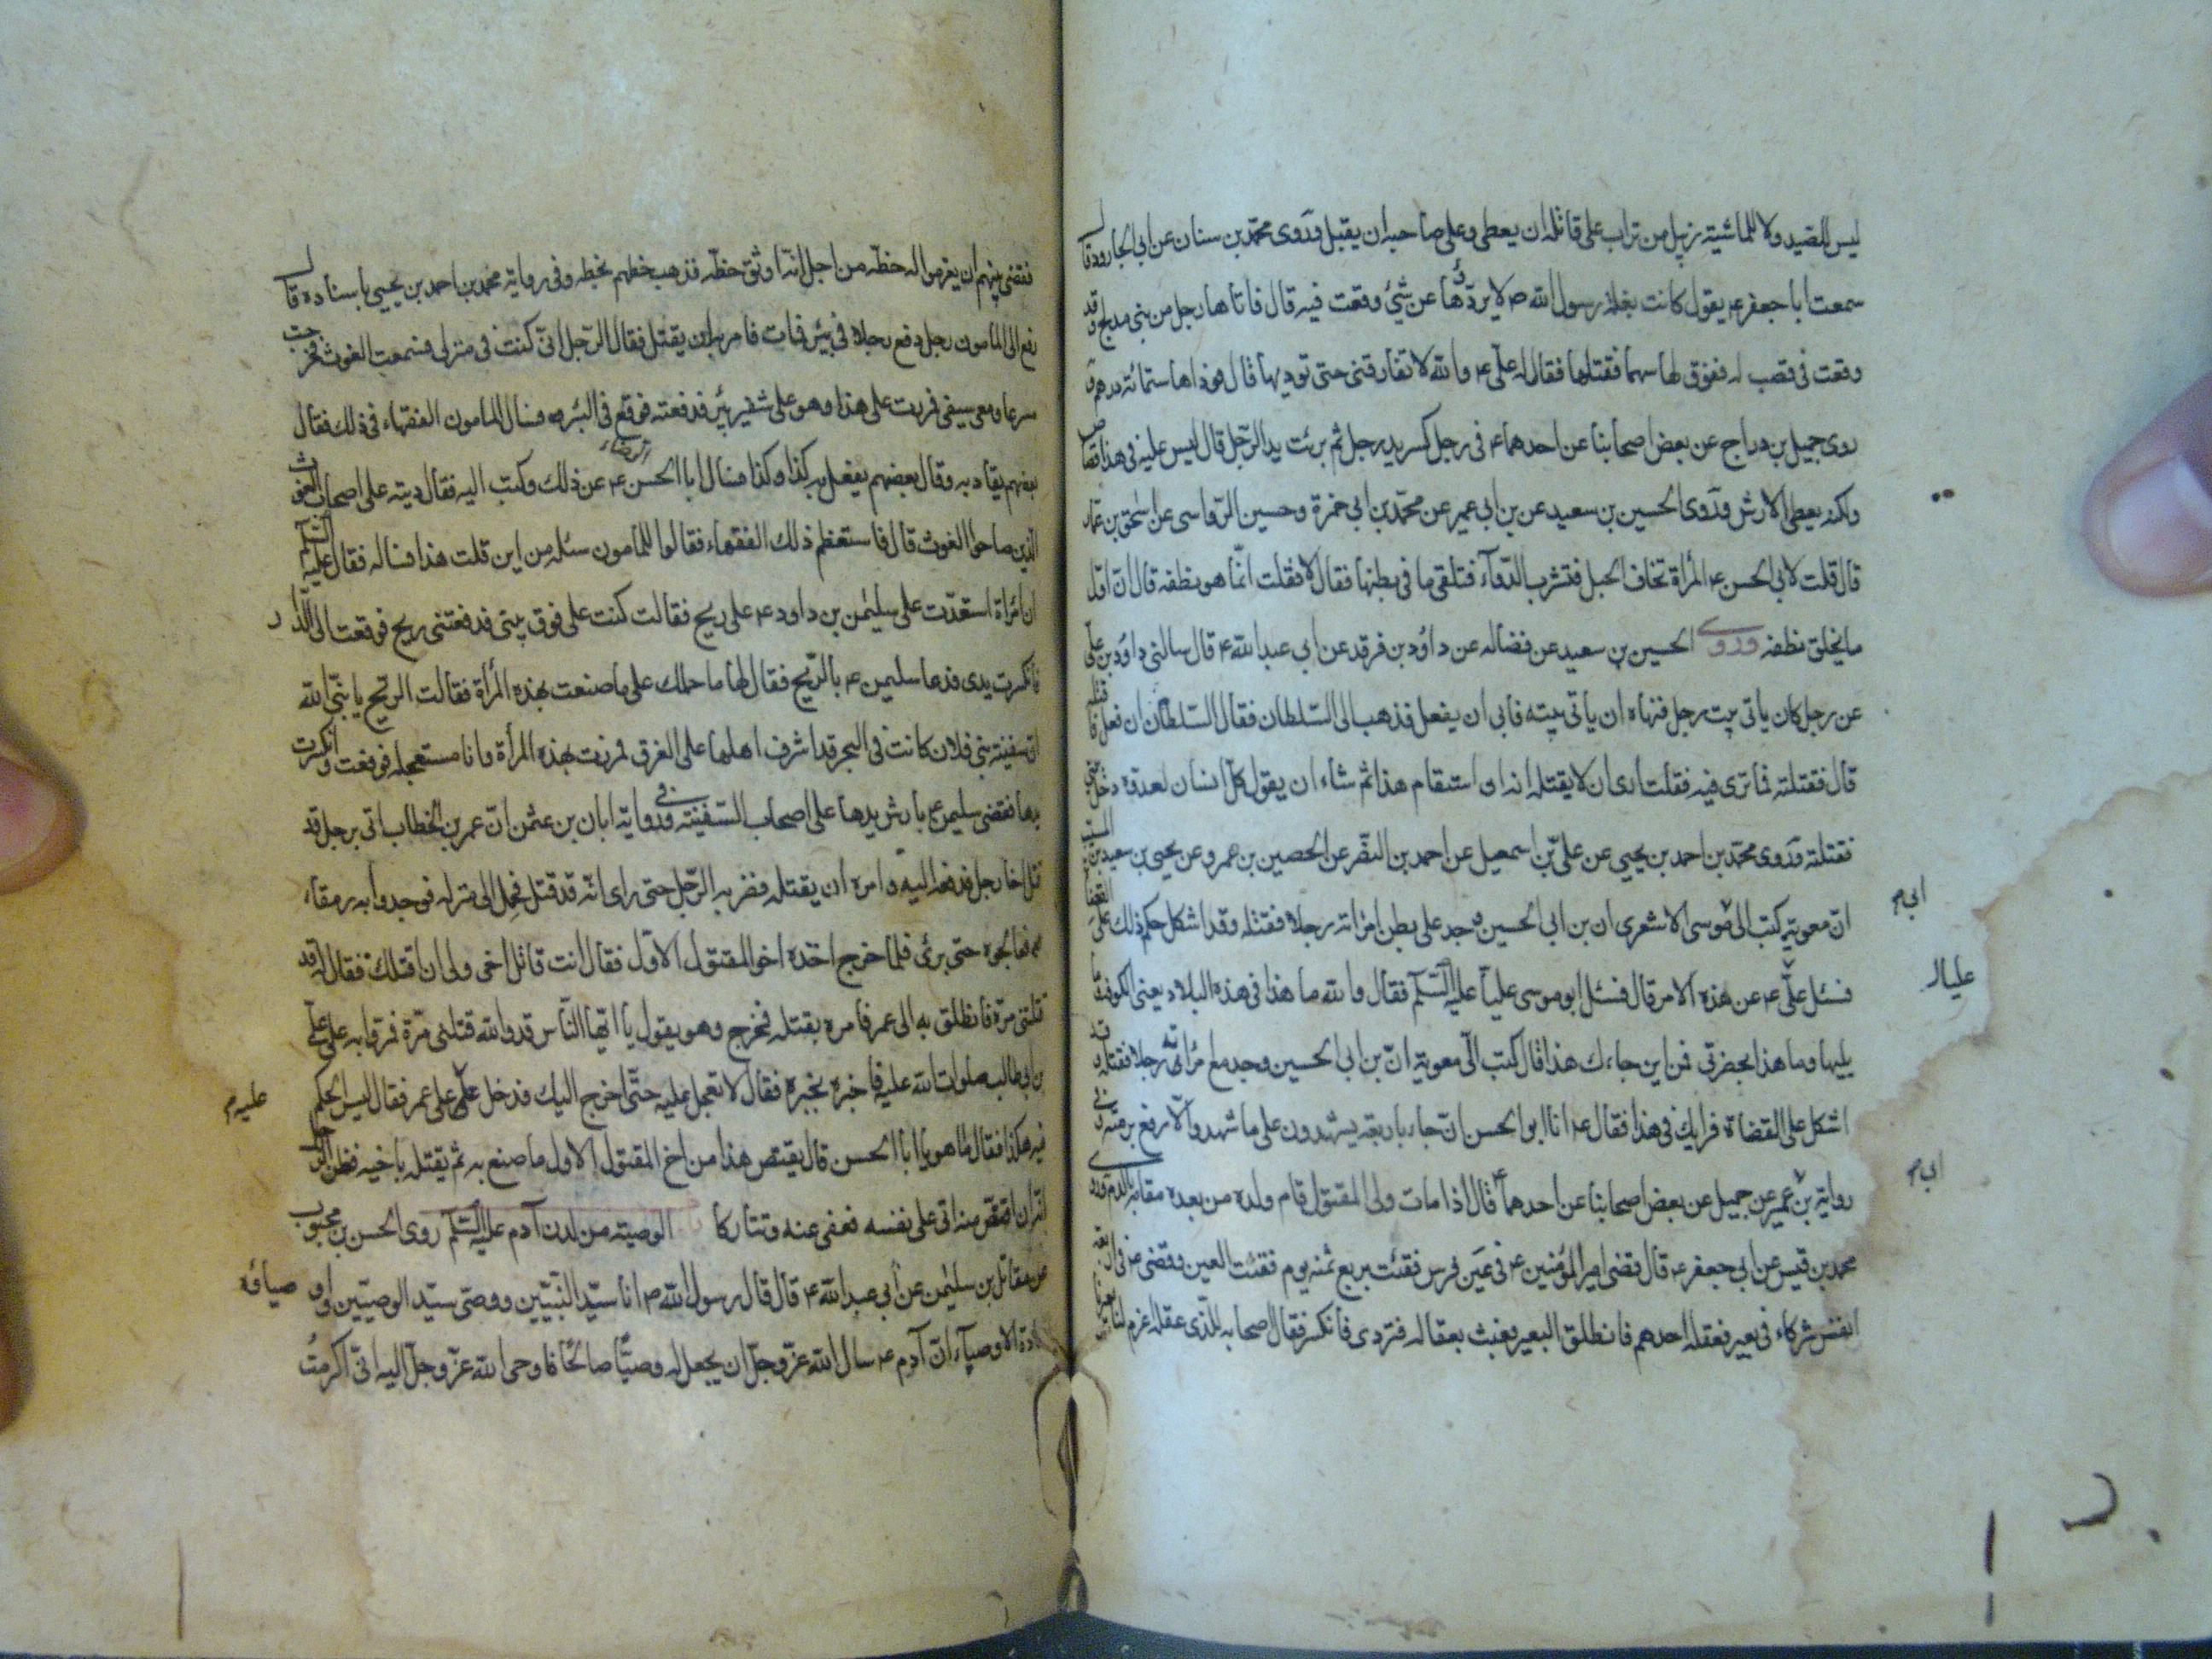 ليس للصيد ولا للماشية زبيل من تراب على قاتله ان يعطى وعلى صاحبه ان يقبل وروى محمد بن سنان عن ابى الجارود قال
سمعت ابا جعفر ع يقول كانت بغلة رسول الله ص لا يردّها عن شئ وقعت فيه قال فاتاها رجل من بنى مدلج وقد
وقعت فى قصب له ففوّق لها سهما فقتلها فقال له على ع والله لا تفارقنى حتى توديها قال فوداها ستمائة درهم و
روى جميل بن دراج عن بعض اصحابنا عن احدهما ع فى رجل كسر يد رجل ثم برئت يد الرجل قال ليس عليه فى هذا قصاص
ولكنه يعطى الارش وروى الحسين بن سعيد عن بن ابى عمير عن محمد بن ابى حمزة وحسين الرواسى عن اسحق بن عمار
قال قلت لابى الحسن ع المرأة تخاف الحبل فتشرب الدوآء فتلقى ما فى بطنها فقال لا فقلت انّما هو نطفه قال انّ اوّل
ما يخلق نطفه وروى الحسين بن سعيد عن فضاله عن داود بن فرقد عن ابي عبد الله ع قال سالنى داود بن على
عن رجل كان ياتى بيت رجل فنهاه ان ياتى بيته فابى ان يفعل فذهب الى السلطان فقال السلطان ان فعل فاقتله
قال فقتلته فما ترى فيه فقلت ارى ان لا يقتله انه ان استقام هذا ثم شاء ان يقول كل انسان لعدوه دخل بيتى
فقتلته وروى محمد بن احمد بن يحيى عن علىّ بن اسمعيل عن احمد بن النضر عن الحصين بن عمرو عن يحيى بن سعيد بن المسيب
انّ معوية كتب الى ابى موسى الاشعرى ان بن ابى الحسين وجد على بطن امراته رجلا فقتله وقد اشكل حكم ذلك على القضاة
فسئل علىّ ع عن هذه الامر قال فسئل ابو موسى عليا عليه السلم فقال والله ما هذا فى هذه البلاد يعنى الكوفة وما
يليها وما هذا بحضرتى فمن اين جاءك هذا قال كتب الىّ معوية انّ بن ابى الحسين وجد مع امراته رجلا فقتله وقد
اشكل على القضاة فرايك فى هذا فقال ع انا ابو الحسن ان جاء باربعة يشهدون على ما شهد والّا رفع برمته وفى
رواية بن ابى عمير عن جميل عن بعض اصحابنا عن احدهما ع قال اذا مات ولى المقتول قام ولده من بعده مقامه بالدم وروى
محمد بن قيس عن ابى جعفر ع قال قضى امير المؤمنين ع فى عين فرس فقئت بربع ثمنه يوم فقئت العين وقضى ع فى اربعة
انفس شركاء فى بعير فعقله احدهم فانطلق البعير فعبث بعقاله فتردى فانكسر فقال اصحابه للذى عقله اغرم لنا بعيرنا
ابى م
عليا لـ
ابى م
فقضى بينهم ان يغرموا له حظه من اجل انّه اوثق حظّه فذهب حظهم بحظه وفى رواية محمد بن احمد بن يحيى باسناده قال
رفع الى المامون رجل دفع رجلا فى بئر فمات فامر به ان يقتل فقال الرجل انى كنت فى منزلى فسمعت الغوث فخرجت
مسرعا ومعى سيفى فمررت على هذا وهو على شفير بئر فدفعته فوقع فى البئر فسال المامون الفقهاء فى ذلك فقال
بعضهم يقاد به وقال بعضهم يفعل به كذا وكذا فسال ابا الحسن الرضا ع عن ذلك وكتب اليه فقال ديته على اصحاب الغوث
الذين صاحوا الغوث قال فاستعظم ذلك الفقهاء فقالوا للمامون سله من اين قلت هذا فساله فقال عليه السلم
ان امراة استعدت على سليمن بن داود ع على ريح فقالت كنت على فوق بيتى فدفعتنى ريح فوقعت الى الدار
فانكسرت يدى فدعا سليمن ع بالريح فقال لها ما حملك على ما صنعت بهذه المرأة فقالت الريح يا نبىّ الله
ان سفينة بنى فلان كانت فى البحر قد اشرف اهلها على الغرق فمررت بهذه المرأة وانا مستعجلة فوقعت وانكسرت
يدها فقضى سليمن ع بارش يدها على اصحاب السفينة وفى رواية ابان بن عثمن انّ عمر بن الخطاب اتى برجل قد
قتل اخا رجل فدفعه اليه وامره ان يقتله فضربه الرجل حتى راى انّه قد قتل فحمل الى منزله فوجدوا به رمقا
فعالجوه حتى برئ فلما خرج اخذه اخو المقتول الاوّل فقال انت قاتل اخى ولى ان اقتلك فقال له قد
قتلتنى مرّة فانطلق به الى عمر فامره بقتله فخرج وهو يقول يا ايها الناس قد والله قتلنى مرّة فمرّوا به على علىّ
بن ابى طالب صلوات الله عليه فاخبره بخبره فقال لا تعجل عليه حتّى اخرج اليك فدخل علىّ على عمر فقال ليس الحكم
فيه هكذا فقال ما هو يا ابا الحسن قال يقتص هذا من اخ المقتول الاول ما صنع به ثم يقتله باخيه فظن الرجل
انّه ان اقتصّ منه اتى على نفسه فعفى عنه وتتاركا باب الوصية من لدن آدم عليه السلم روى الحسن بن محبوب
عن مقاتل بن سليمن عن ابى عبد الله ع قال قال رسول الله ص انا سيّد النبيّين ووصيّى سيّد الوصيّين واوصياؤه
سادة الاوصيآء انّ آدم ع سال الله عزّ وجلّ ان يجعل له وصيّا صالحًا فاوحى الله عزّ وجلّ اليه انّى اكرمت
عليه م